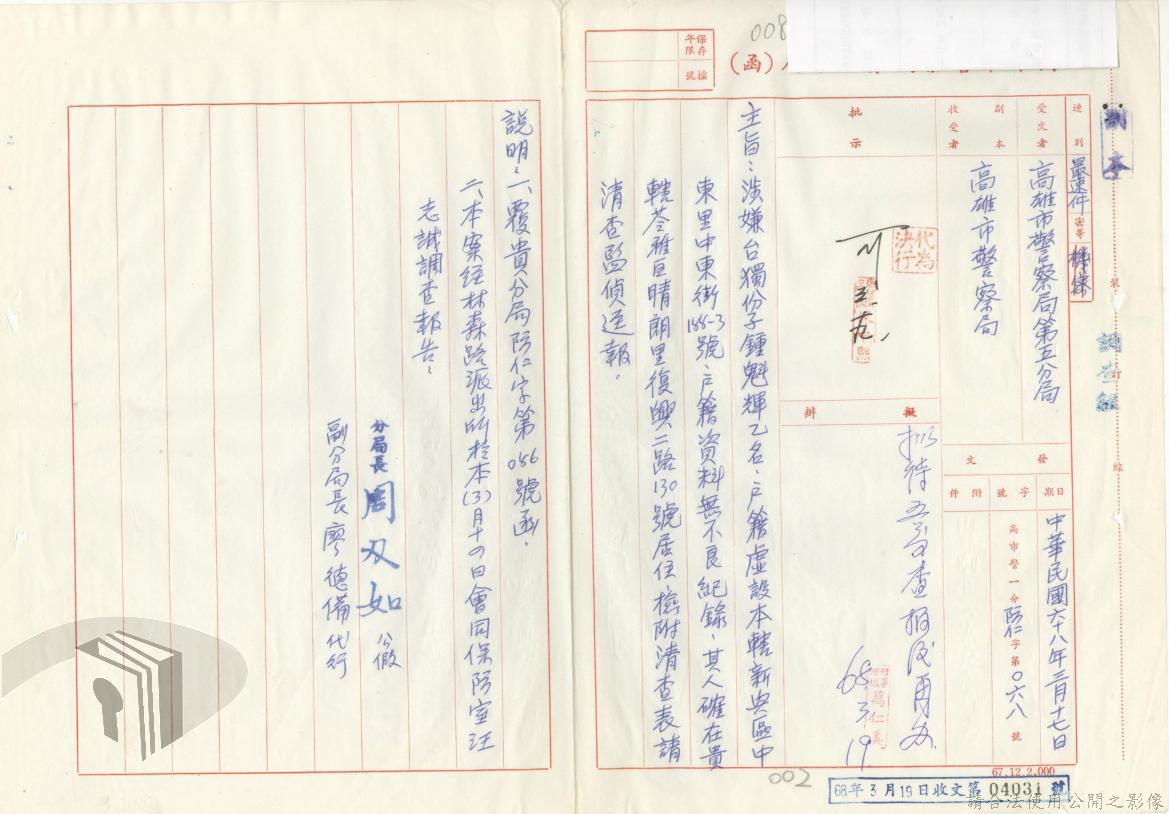 008
保存年限
檔號
(函)
副本
速別
最速件
密等
機密
受文者
高雄市警察局第五分局
副本收受者
高雄市警察局
發文
日期
字號
附件
中華民國六十八年三月十七日
高市警一分防仁字第〇六八號
批示
代為決行
擬辦
擬待五分局查報後再辦
68 3 19
主旨:涉嫌台獨份子鍾魁輝乙名、戶籍虛設本轄新興區中
東里中東街188-3號、戶籍資料無不良紀錄、其人確在貴
轄苓雅區晴朗里復興二路130號居住、檢附清查表請
清查監偵逕報。
說明:一、覆貴分局防仁字第086號函。
二、本案經林森路派出所於本(3)月十四日會同保防室汪
志誠調查報告。
分局長 周双如 公假
副分局長廖德備代行
裝
訂
線
調查組
67.12.2.000
002
68年3月19日收文第04031號
請合法使用公開之影像